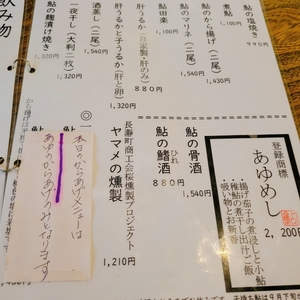 鮎の塩焼き
990円
煮鮎
1,100円
鮎のから揚げ(二尾)
1,430円
鮎のマリネ(二尾)
1,540円
鮎田楽
1,100円
肝うるか(自家製・肝のみ)
880円
肝うるかと子うるか(肝と卵)
1,320円
酒蒸し(二尾)
1,540円
一夜干し(大判二枚)
1,540円
鮎の麹漬け焼き
1,320円
飲み物
登録商標
あゆめし
2,200円
揚げ茄子の煮浸しと小鮎
稚鮎の煮干し出汁ご飯
吸い物とお新香
鮎の骨酒
1,540円
鮎の鰭酒
ひれ
880円
長寿町商工会桜燻製プロジェクト
ヤマメの燻製
1,210円
本日のからあげメニューは
あゆのからあげのみとなります